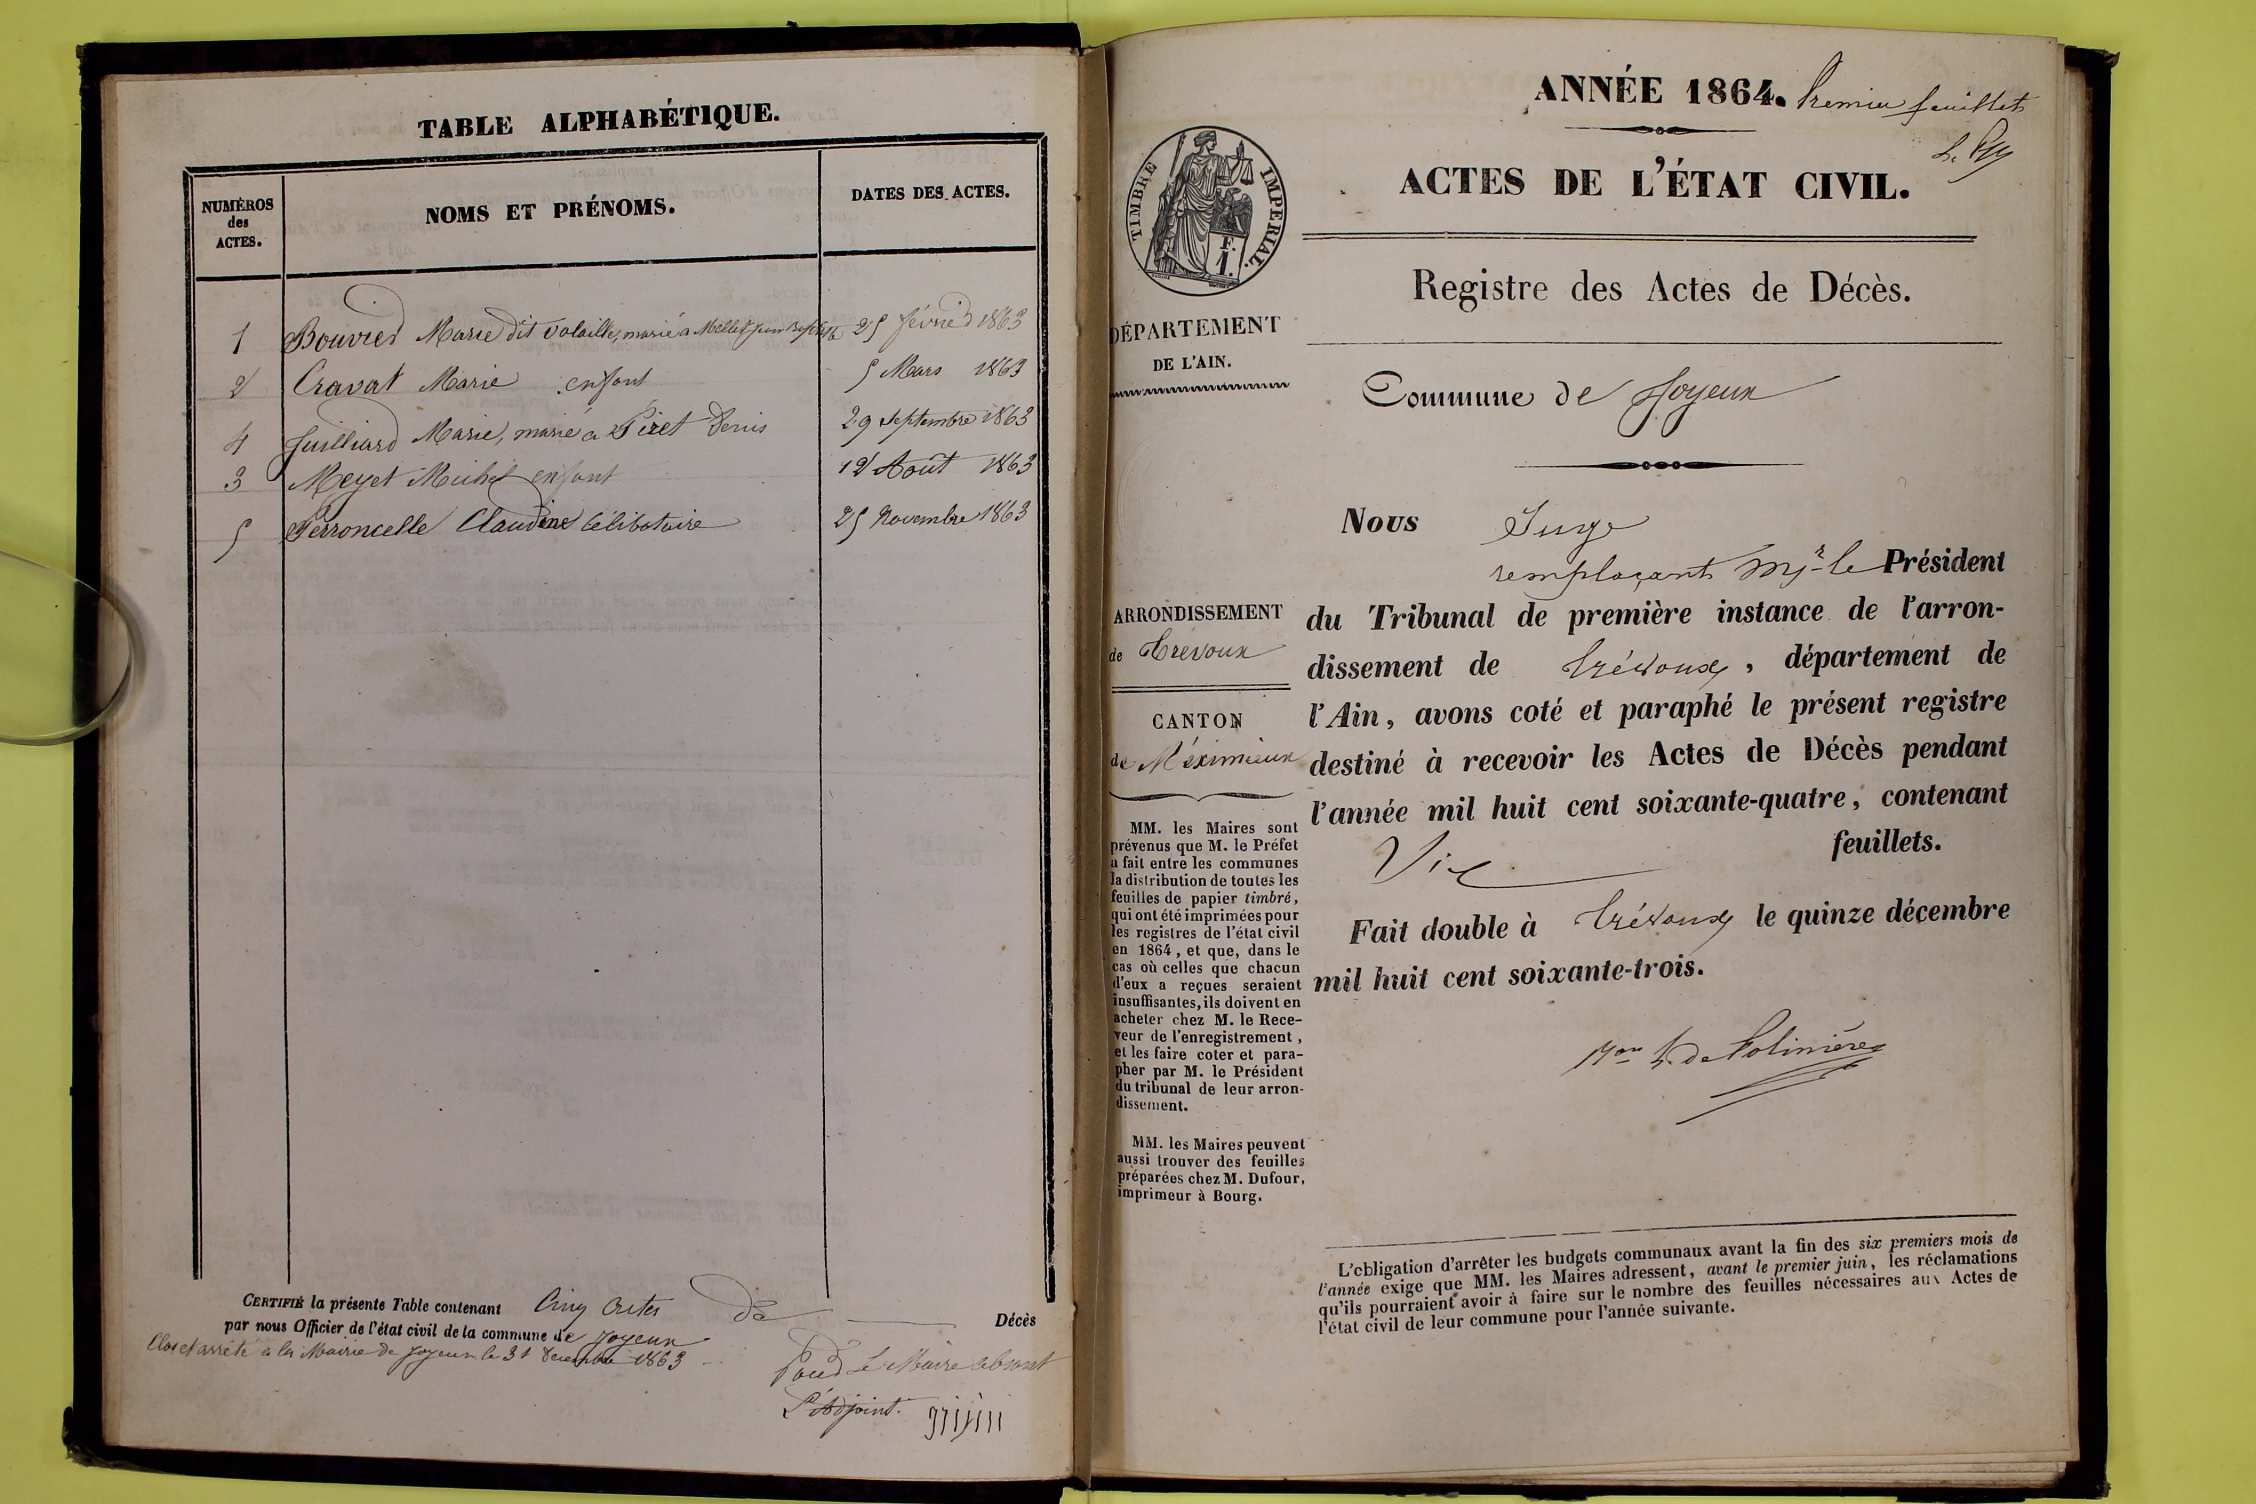 TABLE ALPHABÉTIQUE.
NUMÉROS
des
ACTES.
NOMS ET PRÉNOMS.
DATES DES ACTES.
1 Bouvier Marie dit Volaille, marié à Mellet 25 février 1863
2 Cravat Marie enfant 5 Mars 1863
4 Juilliard Marie, marié à Pizet Denis 29 Septembre 1863
3 Meyet Michel enfant 12 Août 1863
5 Perroncelle Claudine Célibataire 25 Novembre 1863
CERTIFIÉ la présente Table contenant Cinq Actes de Décès
par nous Officier de l'état civil de la commune de Joyeux
Clos et arrêté à la Mairie de Joyeux le 31 Décembre 1863
Pour Le Maire absent
L'Adjoint.
ANNÉE 1864. Premier feuillet
ACTES DE L'ÉTAT CIVIL.
TIMBRE IMPERIAL.
Registre des Actes de Décès.
DÉPARTEMENT
DE L'AIN.
Commune de Joyeux
Nous Juge
remplaçant Mr le Président
du Tribunal de première instance de l'arron-
dissement de Trévoux, département de
l'Ain, avons coté et paraphé le présent registre
destiné à recevoir les Actes de Décès pendant
l'année mil huit cent soixante-quatre, contenant
Six feuillets.
Fait double à Trévoux le quinze décembre
mil huit cent soixante-trois.
de Polinière
ARRONDISSEMENT
de Trévoux
CANTON
de Méximieux
MM. les Maires sont
prévenus que M. le Préfet
a fait entre les communes
la distribution de toutes les
feuilles de papier timbré,
qui ont été imprimées pour
les registres de l'état civil
en 1864, et que, dans le
cas où celles que chacun
d'eux a reçues seraient
insuffisantes, ils doivent en
acheter chez M. le Rece-
veur de l'enregistrement,
et les faire coter et para-
pher par M. le Président
du tribunal de leur arron-
dissement.
MM. les Maires peuvent
aussi trouver des feuilles
préparées chez M. Dufour,
imprimeur à Bourg.
L'obligation d'arrêter les budgets communaux avant la fin des six premiers mois de
l'année exige que MM. les Maires adressent, avant le premier juin, les réclamations
qu'ils pourraient avoir à faire sur le nombre des feuilles nécessaires aux Actes de
l'état civil de leur commune pour l'année suivante.